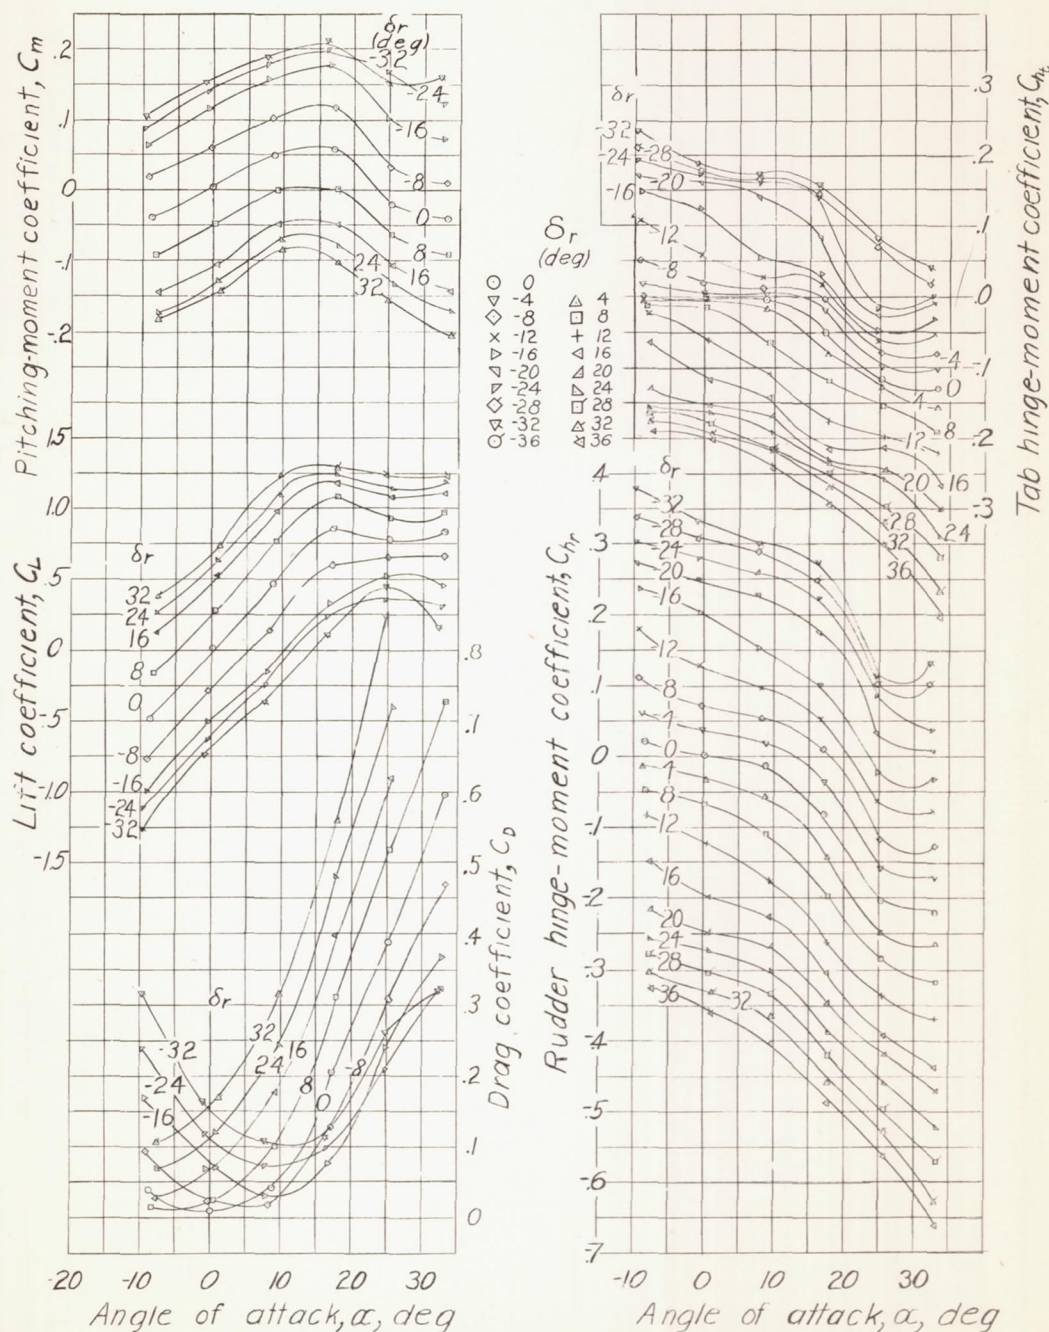 Pitching-moment coefficient, Cm
.2
.1
0
-.1
-.2
δr
(deg)
-32
-24
-16
-8
0
8
16
24
32
Lift coefficient, CL
1.5
1.0
.5
0
-.5
-1.0
-1.5
δr
32
24
16
8
0
-8
-16
-24
-32
Drag coefficient, CD
.8
.7
.6
.5
.4
.3
.2
.1
0
δr
-32
-24
-16
32
24
16
8
0
-8
-20 -10 0 10 20 30
Angle of attack, α, deg
δr
(deg)
0
-4 4
-8 8
-12 12
-16 16
-20 20
-24 24
-28 28
-32 32
-36 36
Tab hinge-moment coefficient, Cht
.3
.2
.1
.0
-.1
-.2
-.3
δr
-32
-28
-24
-20
-16
-12
-8
-4
0
4
8
12
16
20
24
28
32
36
Rudder hinge-moment coefficient, Chr
.4
.3
.2
.1
0
-.1
-.2
-.3
-.4
-.5
-.6
-.7
δr
-32
-28
-24
-20
-16
-12
-8
-4
0
4
8
12
16
20
24
28
32
36
-10 0 10 20 30
Angle of attack, α, deg